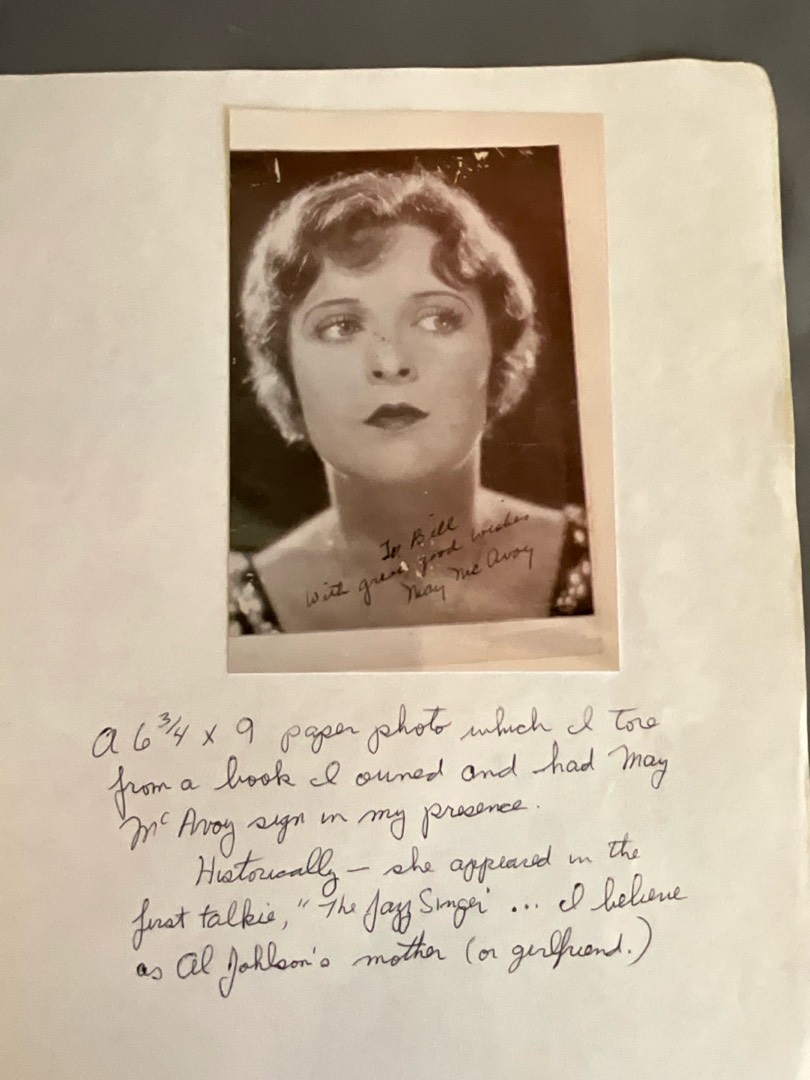 To Bill
With great good wishes
May Mc Avoy
A 6 3/4 x 9 paper photo which I tore
from a book I owned and had May
Mc Avoy sign in my presence.
Historically — she appeared in the
first talkie, "The Jazz Singer" ... I believe
as Al Johlson's mother (or girlfriend.)